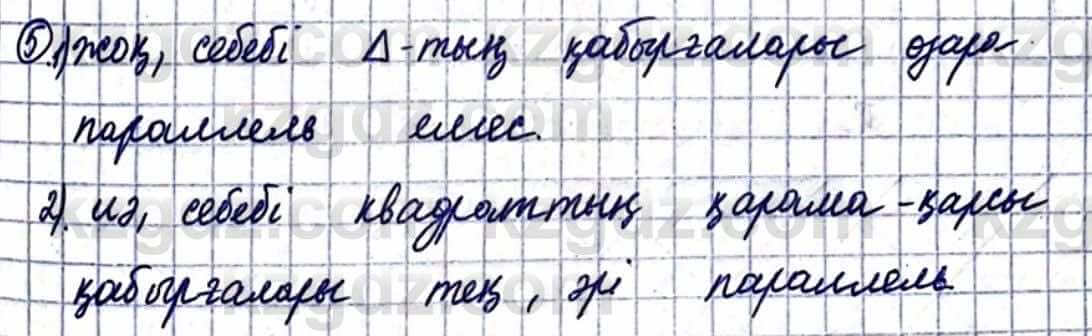 5. 1) жоқ, себебі Δ-тың қабырғалары өзара
параллель емес.
2). иә, себебі квадраттың қарама-қарсы
қабырғалары тең, әрі параллель